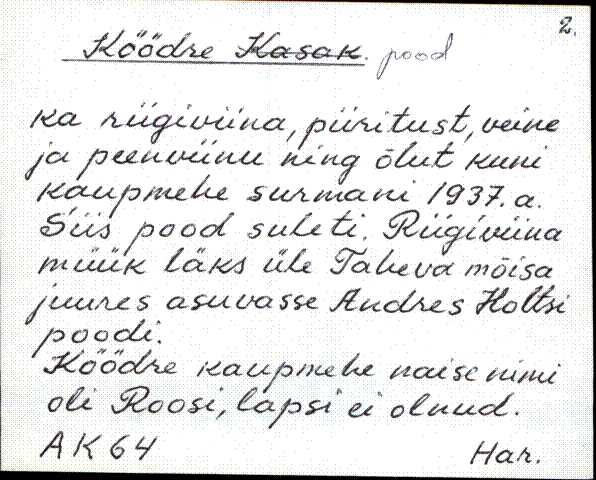 2.
Köödre Kasak. pood
ka riigiviina, piiritust, veine
ja peenviinu ning õlut kuni
kaupmehe surmani 1937. a.
Siis pood suleti. Riigiviina
müük läks üle Taheva mõisa
juures asuvasse Andres Holtsi
poodi.
Köödre kaupmehe naise nimi
oli Roosi, lapsi ei olnud.
AK 64 Har.